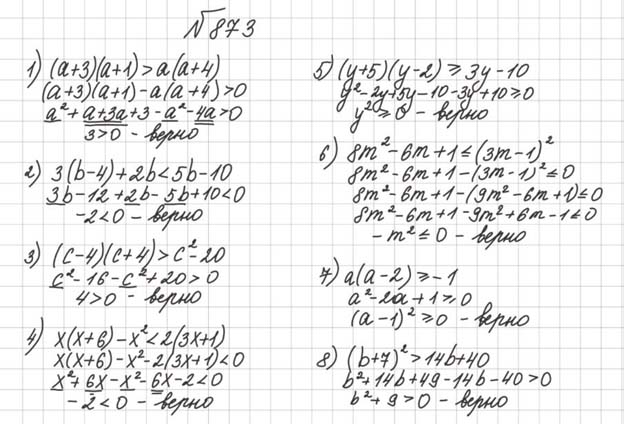 №873
1) (a+3)(a+1) > a(a+4)
(a+3)(a+1) - a(a+4) > 0
a² + a + 3a + 3 - a² - 4a > 0
3 > 0 - верно
2) 3(b-4) + 2b < 5b - 10
3b - 12 + 2b - 5b + 10 < 0
-2 < 0 - верно
3) (c-4)(c+4) > c² - 20
c² - 16 - c² + 20 > 0
4 > 0 - верно
4) x(x+6) - x² < 2(3x+1)
x(x+6) - x² - 2(3x+1) < 0
x² + 6x - x² - 6x - 2 < 0
-2 < 0 - верно
5) (y+5)(y-2) ≥ 3y - 10
y² - 2y + 5y - 10 - 3y + 10 ≥ 0
y² ≥ 0 - верно
6) 8m² - 6m + 1 ≤ (3m-1)²
8m² - 6m + 1 - (3m-1)² ≤ 0
8m² - 6m + 1 - (9m² - 6m + 1) ≤ 0
8m² - 6m + 1 - 9m² + 6m - 1 ≤ 0
-m² ≤ 0 - верно
7) a(a-2) ≥ -1
a² - 2a + 1 ≥ 0
(a-1)² ≥ 0 - верно
8) (b+7)² > 14b + 40
b² + 14b + 49 - 14b - 40 > 0
b² + 9 > 0 - верно